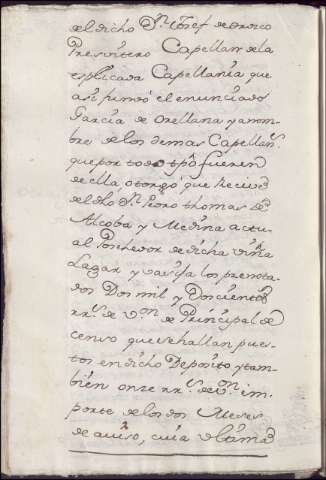 del dicho Sr. Josef de Orosco
Presvitero Capellan de la
esplicada Capellania que
asi fundó el enunciado
Garcia de Orellana y a nom-
bre de los demas Capellans.
que por todo tpô fueren
de ella, otorgó que Recive
del dho Sr. Pedro thomas de
Alcoba y Medina actu-
al Pohehedor de dicha viña
Lagar y vasija los prenota-
dos Dos mil y Doscientos
rrs. de von. de Principal de
censo que se hallan pues-
tos en dicho Deposito y tam-
bien onze rrs. de von. im-
porte de los dos Meses
de aviso, cuia vltima